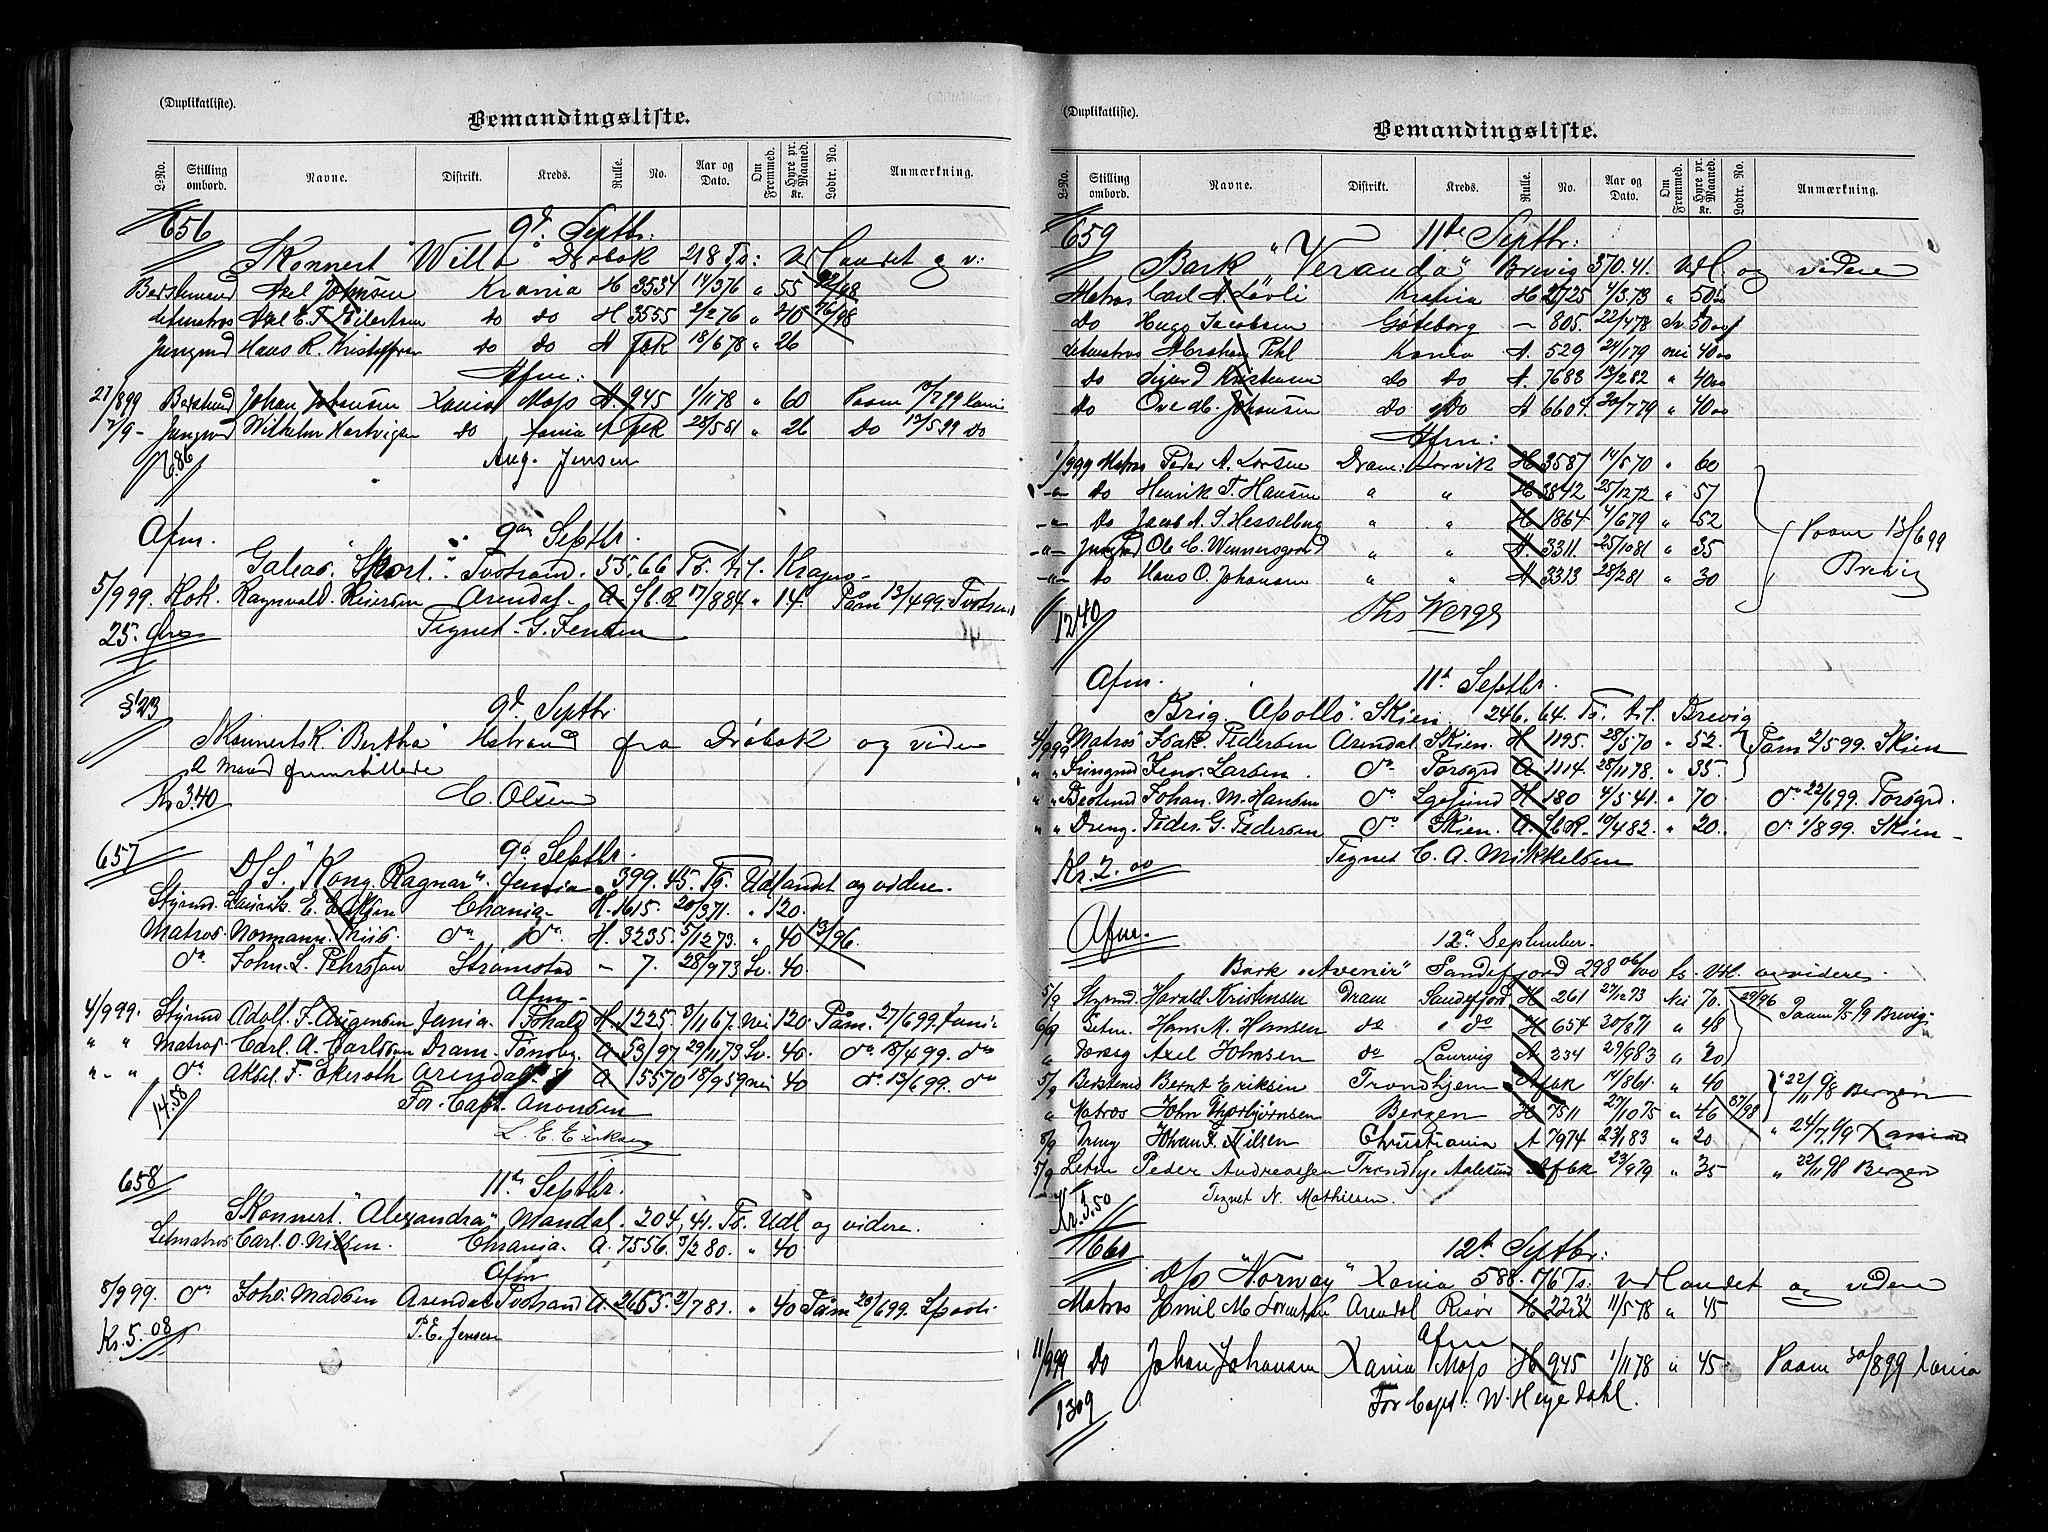 (Duplikatliste).
Bemandingsliste.
L-No. Stilling ombord. Navne. Distrikt. Kreds. Rulle. No. Aar og Dato. Om Fremmed. Hyre pr. Maaned. Kr. Lodtr. No. Anmærkning.
656 9d. Septbr:
Skonnert "Willa" Drøbak 218 Ts: Udlandet og v:
Bedstemand Axel Johnsen Krania H 3534 14/376 " 55
Letmatros Axel E. T. Eilertsen do do H 3555 2/276 " 40
Jungmd Hans R. Kristoffersen do do A FbR 18/678 " 26
Afm:
27/899 Bedstmd Johan Johansen Xania Moss A. 945 1/1178 " 60 Paam 17/799 Xania
7/9- Jungmd Wilhelm Hartvigsen do Xania A FbR 28/581 " 26 Do 12/599 Do
6.86 Aug. Jensen
Afm. 9de Septbr.
Galeas "Skort." Tvestrand. 55,66 Ts. til. Kragerø-
5/999. Kok. Ragnvald. Reiersen Arendal- A- fb.R 17/884 " 14. Påm 13/499. Tvestrand
25. Øre Tegnet. G. Jensen
§ 23 9d. Septbr
Skonnertsk. "Bertha" Hstrand fra Drøbak og videre
2 Mand fremstillede
Kr 3.40 C. Olsen
657 9de Septbr.
D/S. "Kong Ragnar". Xania. 399. 45. Ts. Udlandet og videre.
Styrmd. Laurits. E. Eriksen Chania- H. 1615. 20/371. " 120.
Matros. Normann. Friis. do do H. 3235. 5/1273. " 40 13/96.
do John. L. Pehrsson Strømstad - 7. 28/973 Sv. 40.
Afm-
4/999. Styrmd Adolf. F. Jørgensen Xania. H. 1225. 3/1167. Nei 120. Påm. 27/699. Xania
" " Matros. Carl. A. Carlsson Dram. Tønsbg. A 53/97 29/1173 Sv. 40. do 18/499. do
" - " do Aksel. F. Ekeroth Arendal. A 15570 18/959 nei 40 do 13/699. do
14.58 For. Capt. Anonsen
L. E. Eriksen
658 11te Septbr.
Skonnert. "Alexandra" Mandal. 204,41. Ts. Udl og videre.
Letmatros Carl. O. Nilsen. Chrania. A. 7556. 3/280. " 40.
Afm
8/999. do Johs: Madsen Arendal Tvestrand A. 2655. 2/781. " 40 Påm 20/699.
Kr. 5. 08 P. E. Jensen
(Duplikatliste).
Bemandingsliste.
L-No. Stilling ombord. Navne. Distrikt. Kreds. Rulle. No. Aar og Dato. Om Fremmed. Hyre pr. Maaned. Kr. Lodtr. No. Anmærkning.
659 11te Septbr:
Bark "Veranda" Brevig 370.41. Udl. og videre
Matros Carl A. Løvli Krania H 2725 4/373 " 50
Do Hugo Jacobsen Göteborg - 805. 22/478 Sv. 50
Letmatros Abraham Pehl Krania A. 529 24/179 nei 40
Do Sigurd Kristensen Do Do A. 7688 13/282 " 40
Do Ove Chr. Johansen Do Do A 6604. 20/779 " 40
Afm:
1/999 Matros Peder A. Larsen Dram: Larvik H 3587 14/570 " 60
-"- Do Henrik T. Hansen " " H 3842 25/1272 " 57
-"- Do Jacob A. S. Hesselberg " " H 1864 4/679 " 52 Paam 13/699
-"- Jungmd Ole C. Wennersgaard " " A. 3311 25/1081 " 35 Brevig
-"- Do Hans O. Johansen " " A 3313 28/281 " 30
12,40 Ths Werge
Afm. 11te Septbr.
Brig "Apollo". Skien. 246. 64. Ts. til. Brevig
4/999 Matros Isak Pedersen Arendal Skien. H 1195. 28/570 " 52. Påm 2/599. Skien
" " Jungmd Jens. Larsen. do Porsgrd A 1114. 28/1178. " 35.
" " Bedstmd Johan. M. Hansen do H 180 4/541. " 70 do 22/699. Porsgrd.
" " Dreng. Peder. G. Pedersen do Skien. A. fb.R- 10/482. " 20. do 1/899. Skien-
Kr. 2. 00 Tegnet C. A. Mikkelsen
Afm. 12te September.
Bark "Avenir" Sandefjord 298 06/100 ts. Utl. og videre.
5/9 Styrmd. Harald Kristensen Dram Sandefjord H 261 27/1273 Nei 70. 29/96 Paam 9/5 99 Brevig-
6/9 Letm. Hans M. Hansen do do H 654 30/871 " 48
" Axel Johnsen do Laurvig A 234 29/983 " 20
5/9 Bedstemd Bernt Eriksen Trondhjem A fbk 14/861. " 40 " 22/11 98 Bergen
" Matros John Thorbjørnsen Bergen H 7511 27/1075 " 46 37/98
8/9 Dreng Johan F. Nilsen Christiania A 7974 23/183 " 20 " 24/7 99 Xania
5/9 Letm Peder Andreassen Trondhj. Aalesund A fbk 23/979 " 35 " 22/11 98 Bergen
Kr. 3.50 Tegnet N. Mathiesen.
660 12te Septbr:
D/S "Norway" Xania 588. 76 Ts: Udlandet og videre
Matros Emil M. Lorentsen Arendal Risør H 2232 11/578 " 45
Afm
11/999 Do Johan Johansen Xania Moss H 945 1/1178 " 45 Paam 30/899 Xania
1309 For Capt: W. Heyerdahl.